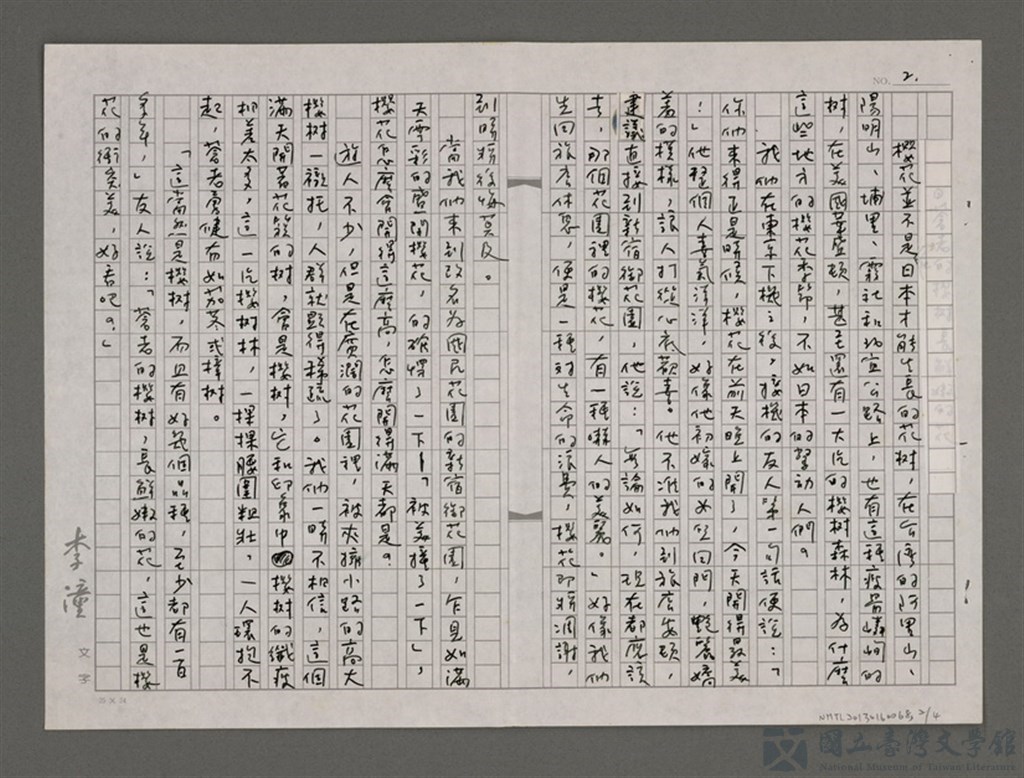 NO. 2.
櫻花並不是日本才能生長的花树，在台灣的阿里山、
陽明山、埔里、霧社和北宜公路上，也有這種疲骨嶙峋的
树，在美國華盛頓，甚至還有一大片的櫻树森林，為什麼
這些地方的櫻花季節，不如日本的擊动人們。
我們在東京下機之後，接機的友人第一句話便說：「
你們來得正是時候，櫻花在前天晚上開了，今天開得最美
！」他整個人喜氣洋洋，好像他初嫁的女兒回門，艷麗嬌
羞的模樣，讓人打從心底歡喜。他不准我們到旅店安頓，
建議直接到新宿御花園，他說：「無論如何，現在都應該
去，那個花園裡的櫻花，有一種嚇人的美麗。」好像我們
先回旅店休息，便是一種對生命的浪費，櫻花即將凋謝，
到時將後悔莫及。
當我們來到改名為國民花園的新宿御花園，乍見如滿
天雲彩的盛開櫻花，的確愣了一下—「被美撞了一下」，
櫻花怎麼會開得這麼高，怎麼開得滿天都是？
遊人不少，但是在廣濶的花園裡，被夾擁小路的高大
櫻树一襯托，人群就顯得稀疏了。我們一時不相信，這個
滿天開著花簇的树，會是櫻树，它和印象中櫻树的纖瘦
相差太多，這一片櫻树林，一棵棵腰圍粗壯，一人環抱不
起，蒼老勇健有如茄苳或樟树。
「這當然是櫻树，而且有好幾個品種，至少都有一百
多年，」友人說：「蒼老的櫻树，長鮮嫩的花，這也是櫻
花的衝突美，好看吧？」
李潼
文字
25 X 24
NMTL20130160068, 2/4
國立臺灣文學館
National Museum of Taiwan Literature